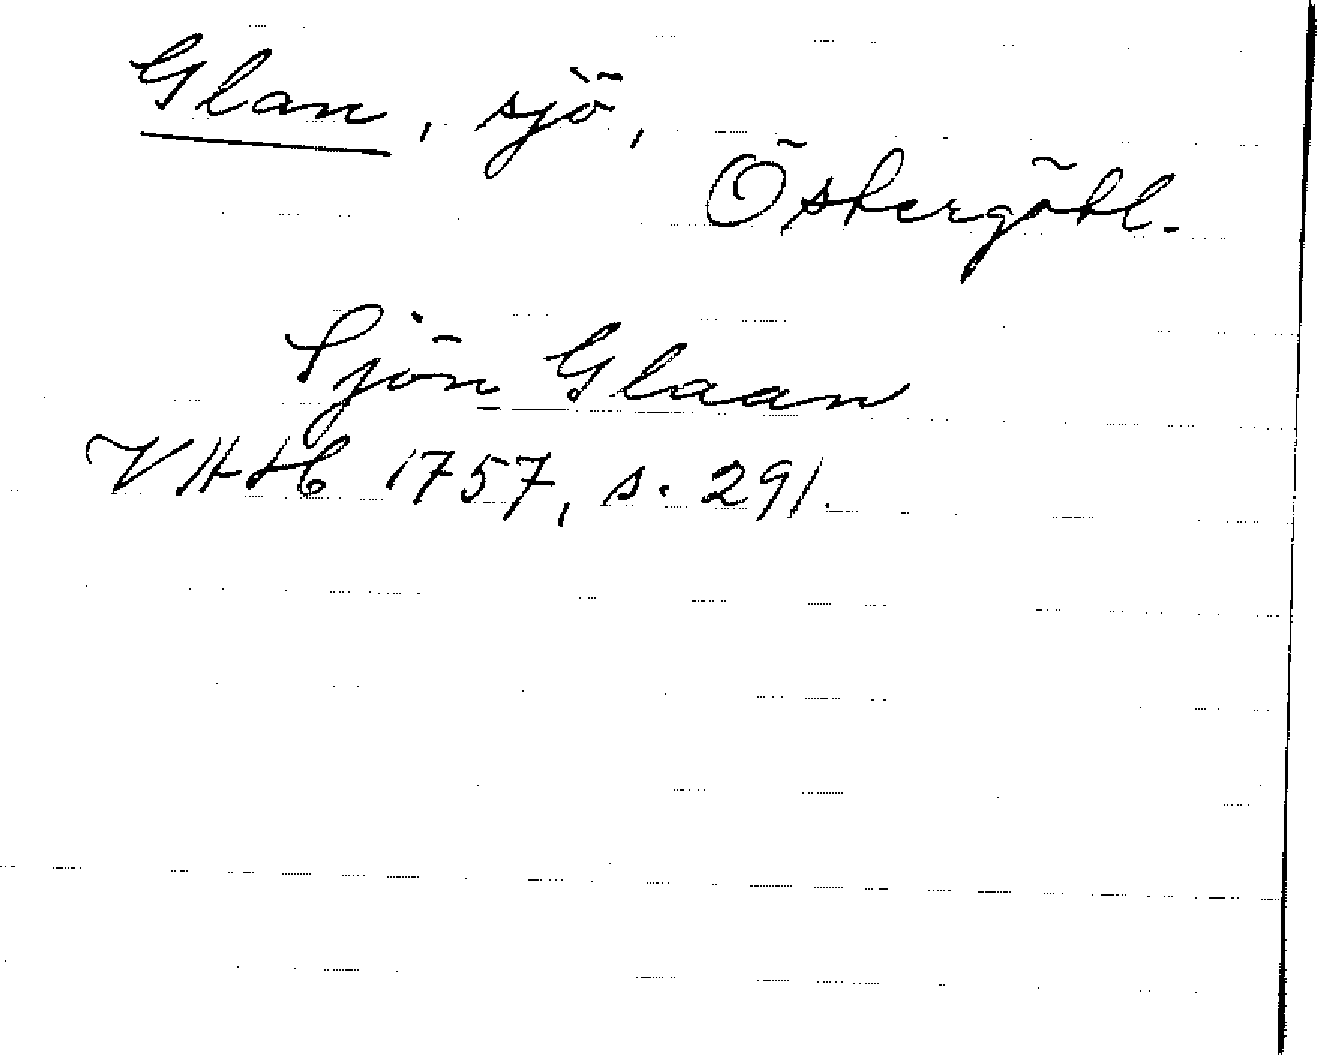 Glan, sjö,
Östergötl.
Sjön Glaan
VAH 1757, s. 291.